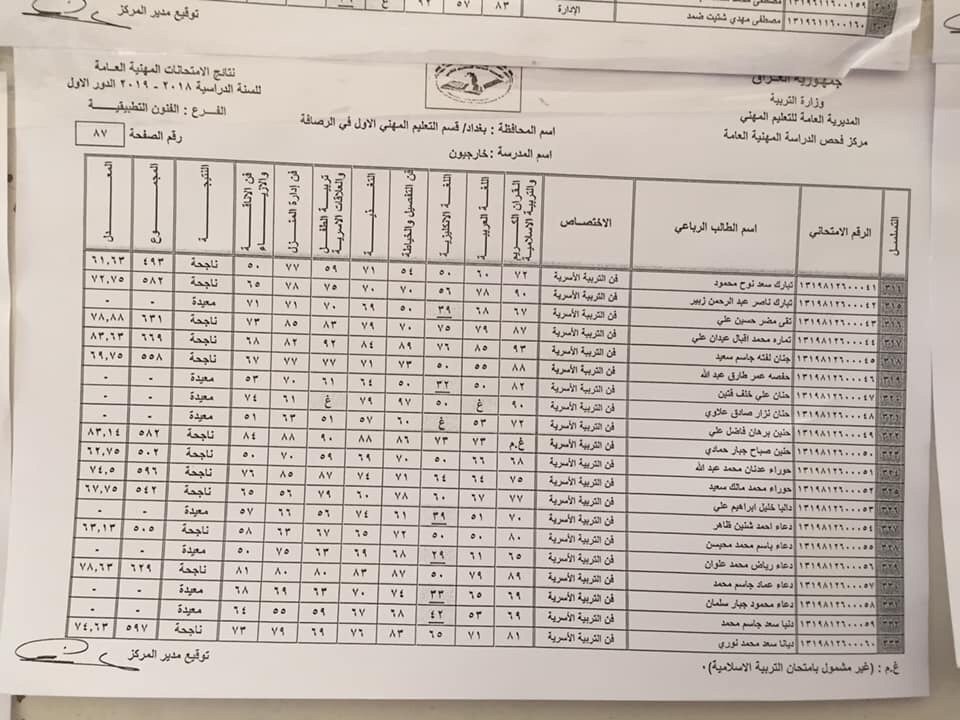 ١٣١٩٦١١٦٠٠١٥٩
الإدارة ٨٣ ٥٧ ٩٢ غ
١٣١٩٦١١٦٠٠١٦٠ مصطفى مهدي شتيت ضمد
توقيع مدير المركز
جمهورية العراق
وزارة التربية
المديرية العامة للتعليم المهني
مركز فحص الدراسة المهنية العامة
اسم المحافظة : بغداد/ قسم التعليم المهني الاول في الرصافة
اسم المدرسة : خارجيون
نتائج الامتحانات المهنية العامة
للسنة الدراسية ٢٠١٨ - ٢٠١٩ الدور الاول
الفـرع : الفنون التطبيقيـة
رقم الصفحة ٨٧
التسلسل الرقم الامتحاني اسم الطالب الرباعي الاختصاص القران الكريم والتربية الاسلامية اللغة العربية اللغة الانكليزية فن التفصيل والخياطة التغذية تربية الطفل والعلاقات الاسرية فن إدارة المنزل فن الاناقة والازياء النتيجة المجموع المعدل
٣١٤ ١٣١٩٨١٢٦٠٠٠٤١ تبارك سعد نوح محمود فن التربية الأسرية ٧٢ ٦٠ ٥٠ ٥٤ ٧١ ٥٩ ٧٧ ٥٠ ناجحة ٤٩٣ ٦١,٦٣
٣١٥ ١٣١٩٨١٢٦٠٠٠٤٢ تبارك ناصر عبد الرحمن زبير فن التربية الأسرية ٩٠ ٧٨ ٥٦ ٧٠ ٧٠ ٧٥ ٧٨ ٦٥ ناجحة ٥٨٢ ٧٢,٧٥
٣١٦ ١٣١٩٨١٢٦٠٠٠٤٣ تقى مضر حسين علي فن التربية الأسرية ٦٧ ٦٨ ٣٩ ٥٠ ٦٩ ٧٠ ٧١ ٧١ معيدة - -
٣١٧ ١٣١٩٨١٢٦٠٠٠٤٤ تماره محمد اقبال عيدان علي فن التربية الأسرية ٨٧ ٧٩ ٧٥ ٧٠ ٧٩ ٨٣ ٨٥ ٧٣ ناجحة ٦٣١ ٧٨,٨٨
٣١٨ ١٣١٩٨١٢٦٠٠٠٤٥ جنان لفته جاسم سعيد فن التربية الأسرية ٩٣ ٨٥ ٧٦ ٨٩ ٨٤ ٩٢ ٨٢ ٦٨ ناجحة ٦٦٩ ٨٣,٦٣
٣١٩ ١٣١٩٨١٢٦٠٠٠٤٦ حفصه عمر طارق عبد الله فن التربية الأسرية ٨٨ ٥٥ ٥٠ ٧٣ ٧١ ٧٧ ٧٧ ٦٧ ناجحة ٥٥٨ ٦٩,٧٥
٣٢٠ ١٣١٩٨١٢٦٠٠٠٤٧ حنان علي خلف فتين فن التربية الأسرية ٨٢ ٥٠ ٣٢ ٥٠ ٦٤ ٦١ ٧٠ ٥٣ معيدة - -
٣٢١ ١٣١٩٨١٢٦٠٠٠٤٨ حنان نزار صادق علاوي فن التربية الأسرية ٩٠ غ ٥٠ ٩٧ ٧٩ غ ٦١ ٧٤ معيدة - -
٣٢٢ ١٣١٩٨١٢٦٠٠٠٤٩ حنين برهان فاضل علي فن التربية الأسرية ٧٢ ٥٣ غ ٦٠ ٥٧ ٥١ ٦٣ ٥١ معيدة - -
٣٢٣ ١٣١٩٨١٢٦٠٠٠٥٠ حنين صباح جبار حمادي فن التربية الأسرية غ.م ٧٣ ٧٣ ٨٦ ٨٨ ٩٠ ٨٨ ٨٤ ناجحة ٥٨٢ ٨٣,١٤
٣٢٤ ١٣١٩٨١٢٦٠٠٠٥١ حوراء عدنان محمد عبد الله فن التربية الأسرية ٦٨ ٦٦ ٥٠ ٧٠ ٦٩ ٥٩ ٧٠ ٥٠ ناجحة ٥٠٢ ٦٢,٧٥
٣٢٥ ١٣١٩٨١٢٦٠٠٠٥٢ حوراء محمد مالك سعيد فن التربية الأسرية ٧٥ ٦٤ ٦٤ ٧١ ٧٤ ٨٧ ٨٥ ٧٦ ناجحة ٥٩٦ ٧٤,٥
٣٢٦ ١٣١٩٨١٢٦٠٠٠٥٣ داليا خليل ابراهيم علي فن التربية الأسرية ٧٧ ٦٧ ٦٠ ٧٨ ٦٠ ٧٩ ٥٦ ٦٥ ناجحة ٥٤٢ ٦٧,٧٥
٣٢٧ ١٣١٩٨١٢٦٠٠٠٥٤ دعاء احمد شنين ظاهر فن التربية الأسرية ٧٠ ٥١ ٣٩ ٦١ ٧٤ ٥٦ ٦٦ ٥٧ معيدة - -
٣٢٨ ١٣١٩٨١٢٦٠٠٠٥٥ دعاء باسم محمد محيسن فن التربية الأسرية ٨٠ ٥٠ ٥٠ ٧٢ ٦٥ ٦٧ ٦٣ ٥٨ ناجحة ٥٠٥ ٦٣,١٣
٣٢٩ ١٣١٩٨١٢٦٠٠٠٥٦ دعاء رياض محمد علوان فن التربية الأسرية ٦٥ ٦١ ٢٩ ٦٨ ٦٩ ٦٣ ٧٥ ٥٠ معيدة - -
٣٣٠ ١٣١٩٨١٢٦٠٠٠٥٧ دعاء عماد جاسم محمد فن التربية الأسرية ٨٩ ٧٩ ٥٠ ٨٧ ٨٣ ٨٠ ٨٠ ٨١ ناجحة ٦٢٩ ٧٨,٦٣
٣٣١ ١٣١٩٨١٢٦٠٠٠٥٨ دعاء محمود جبار سلمان فن التربية الأسرية ٦٩ ٦٥ ٣٣ ٧٤ ٧٠ ٦٣ ٦٩ ٦٨ معيدة - -
٣٣٢ ١٣١٩٨١٢٦٠٠٠٥٩ دنيا سعد جاسم محمد فن التربية الأسرية ٦٩ ٥٣ ٤٢ ٦٨ ٦٧ ٥٩ ٥٥ ٦٤ معيدة - -
٣٣٣ ١٣١٩٨١٢٦٠٠٠٦٠ ديانا سعد محمد نوري فن التربية الأسرية ٨١ ٧١ ٦٥ ٨٣ ٧٦ ٦٩ ٧٩ ٧٣ ناجحة ٥٩٧ ٧٤,٦٣
غ.م : (غير مشمول بامتحان التربية الاسلامية).
توقيع مدير المركز